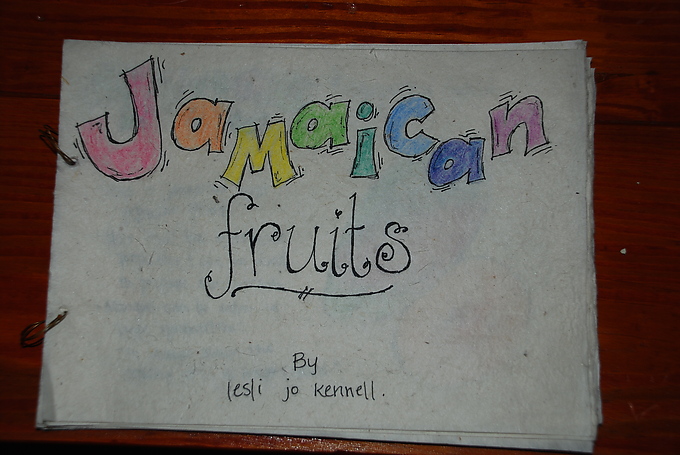 Jamaican
fruits
By
lesli jo kennell.